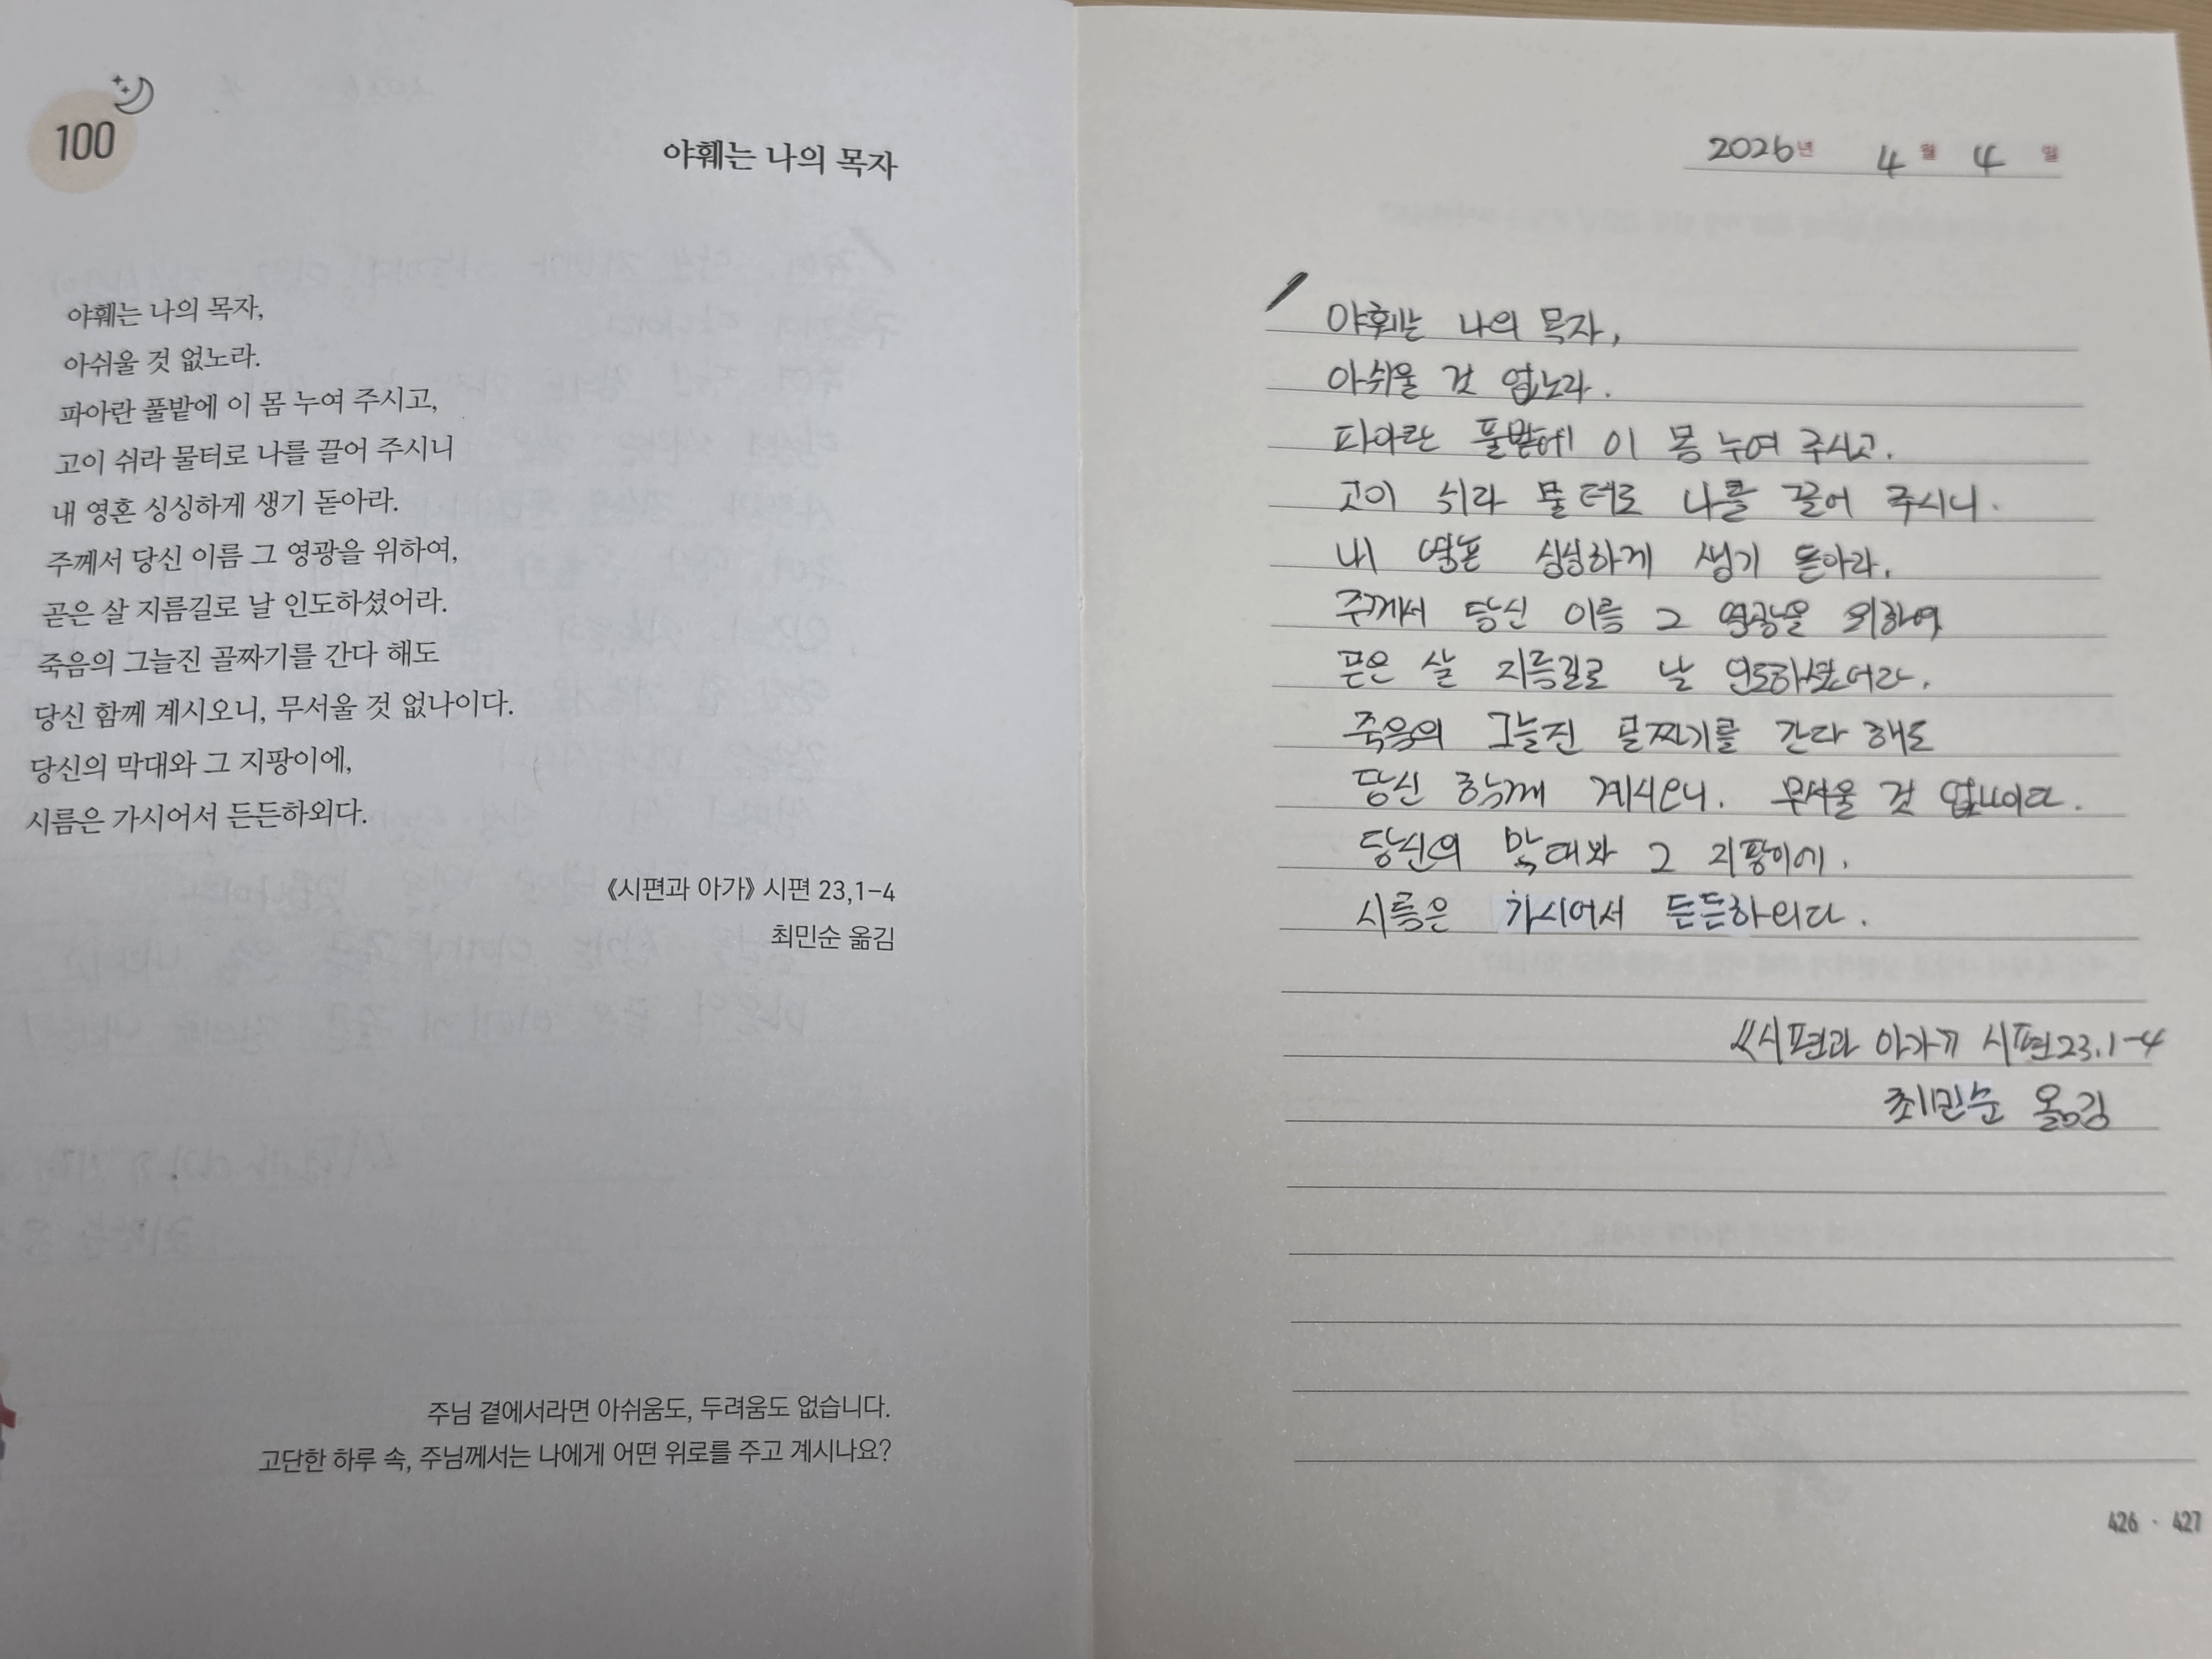 100
야훼는 나의 목자
야훼는 나의 목자,
아쉬울 것 없노라.
파아란 풀밭에 이 몸 누여 주시고,
고이 쉬라 물터로 나를 끌어 주시니
내 영혼 싱싱하게 생기 돋아라.
주께서 당신 이름 그 영광을 위하여,
곧은 살 지름길로 날 인도하셨어라.
죽음의 그늘진 골짜기를 간다 해도
당신 함께 계시오니, 무서울 것 없나이다.
당신의 막대와 그 지팡이에,
시름은 가시어서 든든하외다.
《시편과 아가》 시편 23,1-4
최민순 옮김
주님 곁에서라면 아쉬움도, 두려움도 없습니다.
고단한 하루 속, 주님께서는 나에게 어떤 위로를 주고 계시나요?
2026년 4월 4일
야훼는 나의 목자,
아쉬울 것 없노라.
파아란 풀밭에 이 몸 누여 주시고.
고이 쉬라 물터로 나를 끌어 주시니.
내 영혼 싱싱하게 생기 돋아라.
주께서 당신 이름 그 영광을 위하여
곧은 살 지름길로 날 인도하셨어라.
죽음의 그늘진 골짜기를 간다 해도
당신 함께 계시오니. 무서울 것 없나이다.
당신의 막대와 그 지팡이에.
시름은 가시어서 든든하외다.
《시편과 아가》 시편23.1-4
최민순 옮김
426 · 427